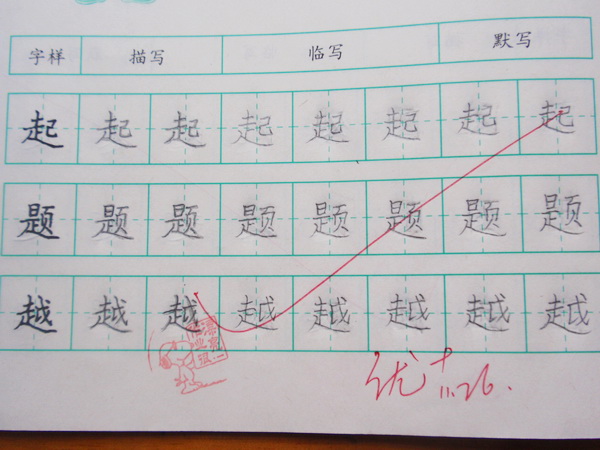 字样 描写 临写 默写
起 起 起 起 起 起 起 起
题 题 题 题 题 题 题 题
越 越 越 越 越 越 越 越
优+
11.26.